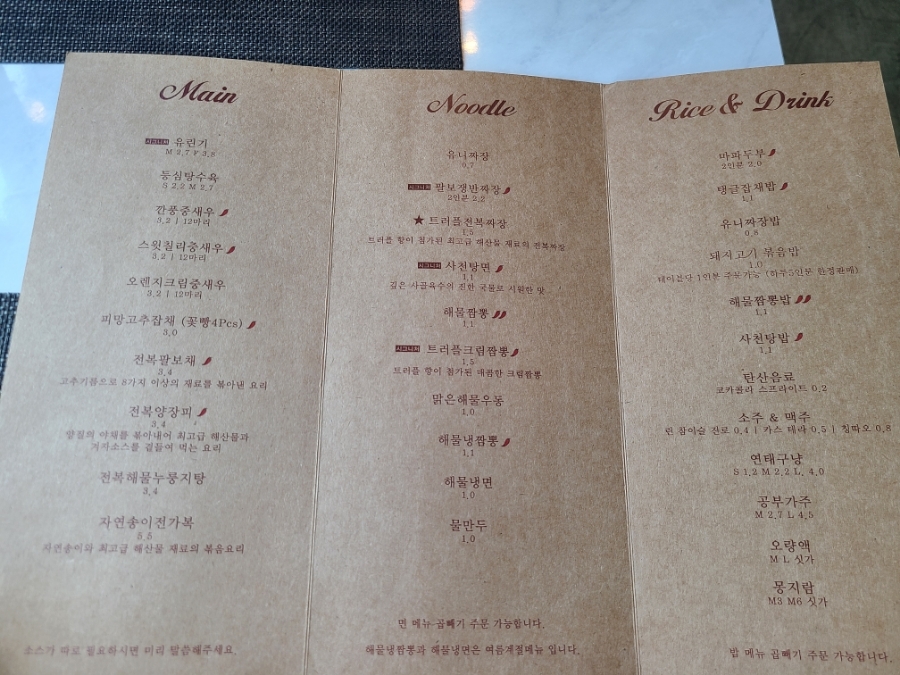 Main
시그니처 유린기
M 2.7 F 3.8
등심탕수육
S 2.2 M 2.7
깐풍중새우
3.2 | 12마리
스윗칠리중새우
3.2 | 12마리
오렌지크림중새우
3.2 | 12마리
피망고추잡채 (꽃빵4Pcs)
3.0
전복팔보채
3.4
고추기름으로 8가지 이상의 재료를 볶아낸 요리
전복양장피
3.4
양질의 야채를 볶아내어 최고급 해산물과
겨자소스를 곁들여 먹는 요리
전복해물누룽지탕
3.4
자연송이전가복
5.5
자연송이와 최고급 해산물 재료의 볶음요리
소스가 따로 필요하시면 미리 말씀해주세요.
Noodle
유니짜장
0.7
시그니처 팔보쟁반짜장
2인분 2.2
★ 트러플전복짜장
1.5
트러플 향이 첨가된 최고급 해산물 재료의 전복짜장
시그니처 사천탕면
1.1
깊은 사골육수의 진한 국물로 시원한 맛
해물짬뽕
1.1
시그니처 트러플크림짬뽕
1.5
트러플 향이 첨가된 매콤한 크림짬뽕
맑은해물우동
1.0
해물냉짬뽕
1.1
해물냉면
1.0
물만두
1.0
면 메뉴 곱빼기 주문 가능합니다.
해물냉짬뽕과 해물냉면은 여름계절메뉴 입니다.
Rice & Drink
마파두부
2인분 2.0
댕글잡채밥
1.1
유니짜장밥
0.8
돼지고기 볶음밥
1.0
테이블당 1인분 주문가능 (하루5인분 한정판매)
해물짬뽕밥
1.1
사천탕밥
1.1
탄산음료
코카콜라 스프라이트 0.2
소주 & 맥주
린 참이슬 진로 0.4 | 카스 테라 0.5 | 칭따오 0.8
연태구냥
S 1.2 M 2.2 L. 4.0
공부가주
M 2.7 L 4.5
오량액
M L 싯가
몽지람
M3 M6 싯가
밥 메뉴 곱빼기 주문 가능합니다.